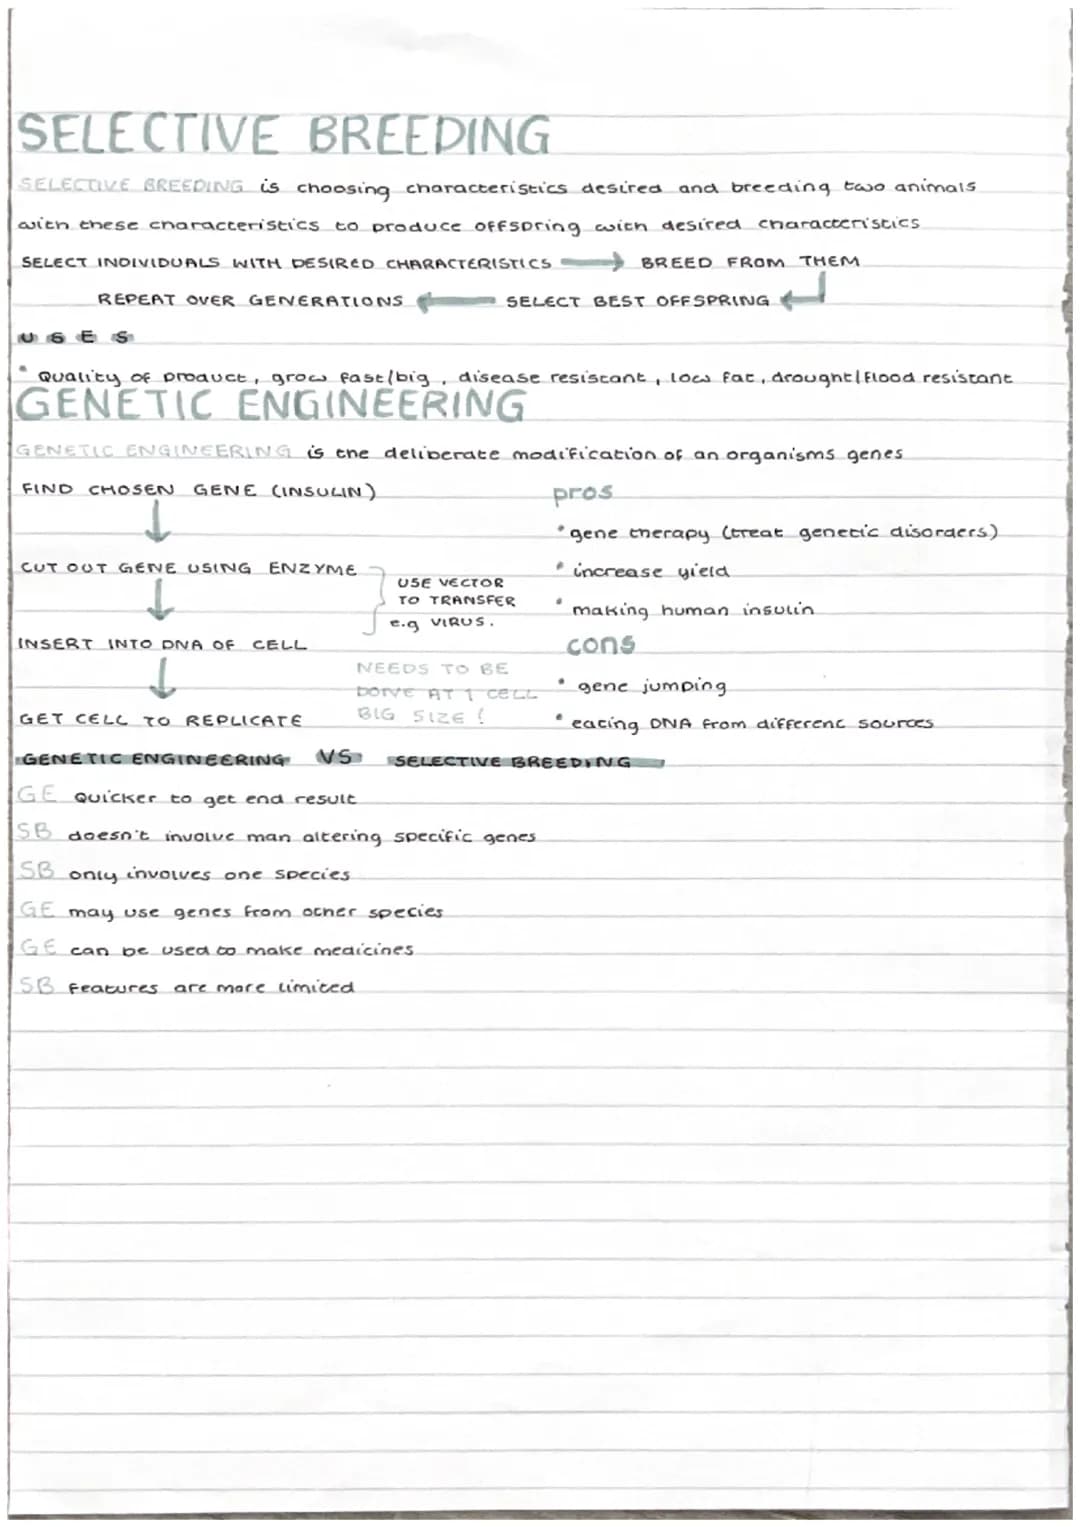 SELECTIVE BREEDING
SELECTIVE BREEDING is choosing characteristics desired and breeding two animals
with these characteristics to produce offspring with desired characteristics
SELECT INDIVIDUALS WITH DESIRED CHARACTERISTICS → BREED FROM THEM
REPEAT OVER GENERATIONS ← SELECT BEST OFFSPRING ↵
USES
• Quality of product, grow fast/big, disease resistant, low fat, drought/flood resistant
GENETIC ENGINEERING
GENETIC ENGINEERING is the deliberate modification of an organisms genes
FIND CHOSEN GENE (INSULIN)
↓
CUT OUT GENE USING ENZYME
↓
INSERT INTO DNA OF CELL
↓
GET CELL TO REPLICATE
USE VECTOR
TO TRANSFER
e.g VIRUS.
NEEDS TO BE
DONE AT 1 CELL
BIG SIZE!
pros
• gene therapy (treat genetic disorders)
• increase yield
• making human insulin
cons
• gene jumping
• eating DNA from different sources
GENETIC ENGINEERING VS SELECTIVE BREEDING
GE Quicker to get end result
SB doesn't involve man altering specific genes
SB only involves one species
GE may use genes from other species
GE can be used to make medicines
SB Features are more limited